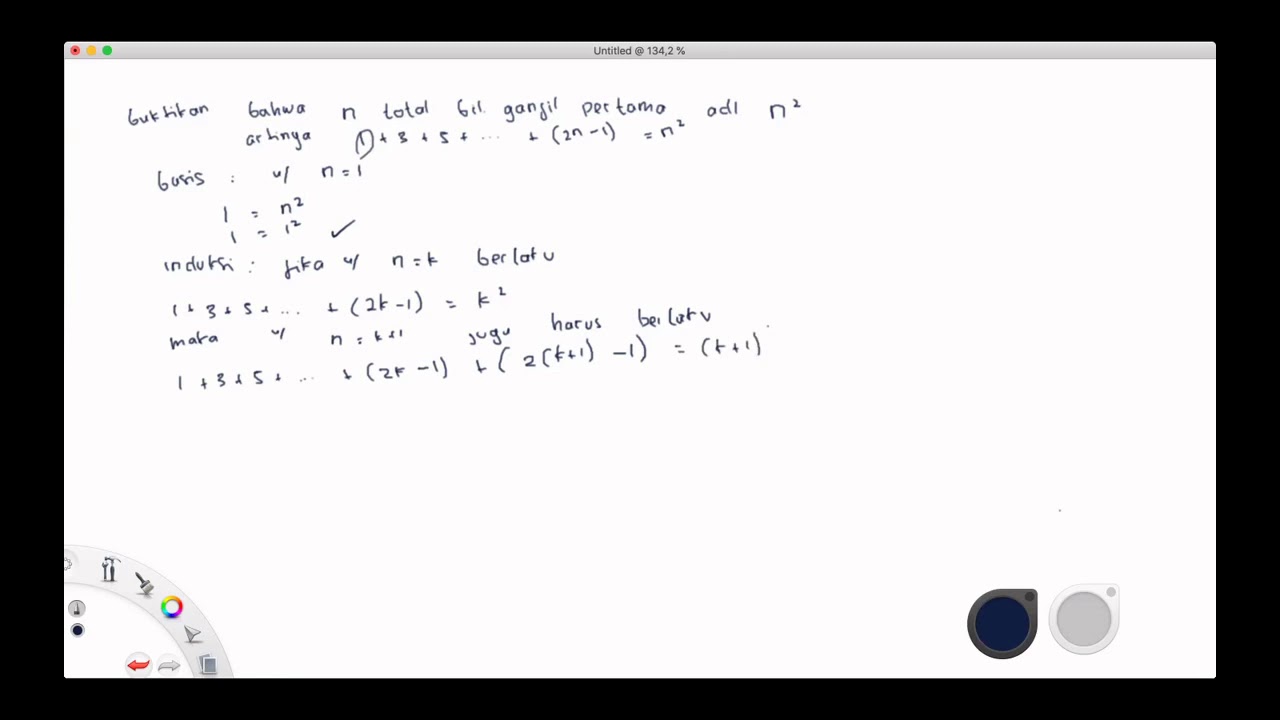 Untitled @ 134,2 %
buktikan bahwa n total bil. ganjil pertama adl n²
artinya 1 + 3 + 5 + ... + (2n-1) = n²
basis : u/ n = 1
1 = n²
1 = 1² ✓
induksi : jika u/ n = k berlaku
1 + 3 + 5 + ... + (2k-1) = k²
maka u/ n = k+1 juga harus berlaku
1 + 3 + 5 + ... + (2k-1) + (2(k+1) -1) = (k+1)